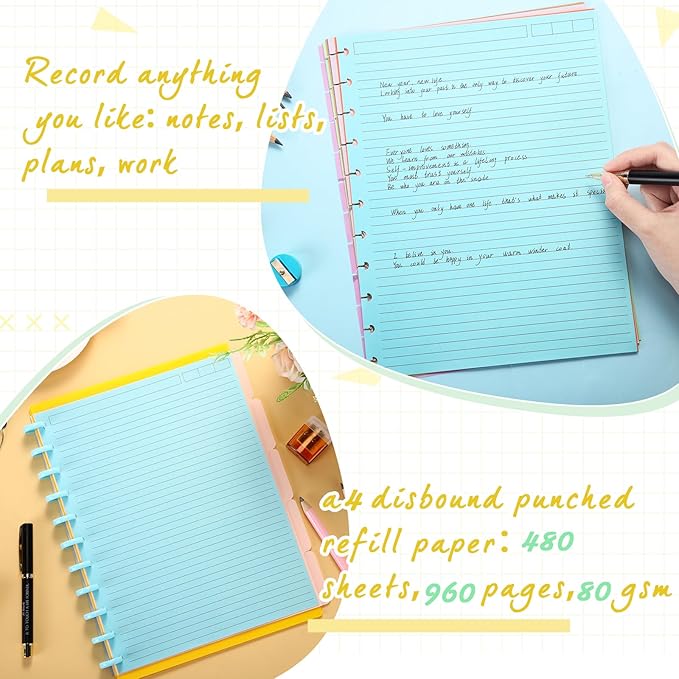 Record anything
you like: notes, lists,
plans, work
New year, new life.
Looking into your past is the only way to discover your future
You have to love yourself.
Everyone loves something.
We learn from our mistakes
Self-improvement is a lifelong process
You must trust yourself
Be who you are on the inside
When you only have one life that's what makes it special
I believe in you.
You could be happy in your warm winter coat.
a4 disbound punched
refill paper: 480
sheets, 960 pages, 80 gsm